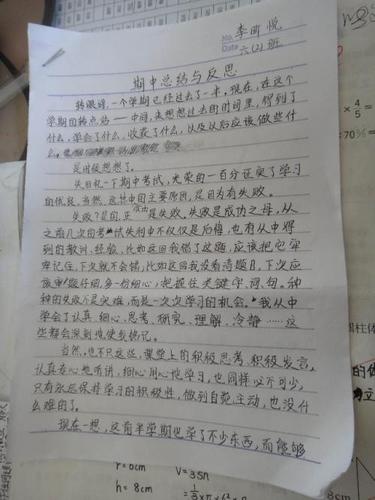 No. 李雨悦
Date 六(2)班
期中总结与反思
转眼间,一个学期已经过去了一半,现在,在这个
学期的转点站——中间,来想想过去的时间里,得到了
什么,学会了什么,收获了什么,以及以后应该做些什
么。
是时候想想了。
先回忆一下期中考试,光荣的一百分证实了学习
的优良。当然,这其中的主要原因,是因为有失败。
失败?是的,正是失败。失败是成功之母,从
之前几次的考试失利中不仅仅是后悔,也有从中得
到的教训、经验,比如这回我错了这题,应该把它牢
牢记住,下次就不会错,比如这回我没看清题目,下次应
该审题仔细,多一份细心,把握住关键字、词、句。种
种的失败不是灾难,而是一次次学习的机会。我从中
学会了认真、细心、思考、研究、理解、冷静……这
些都会深刻地使我铭记。
当然,也不只这些,课堂上的积极思考,积极发言,
认真专心地听讲,细心用心地学习,也同样必不可少,
只有永远保持学习的积极性,做到自觉主动,也没什
么难的了。
现在一想,这前半学期也学了不少东西,而能够
r = 6cm
V = 35π
h = 8cm
× 4/5 =